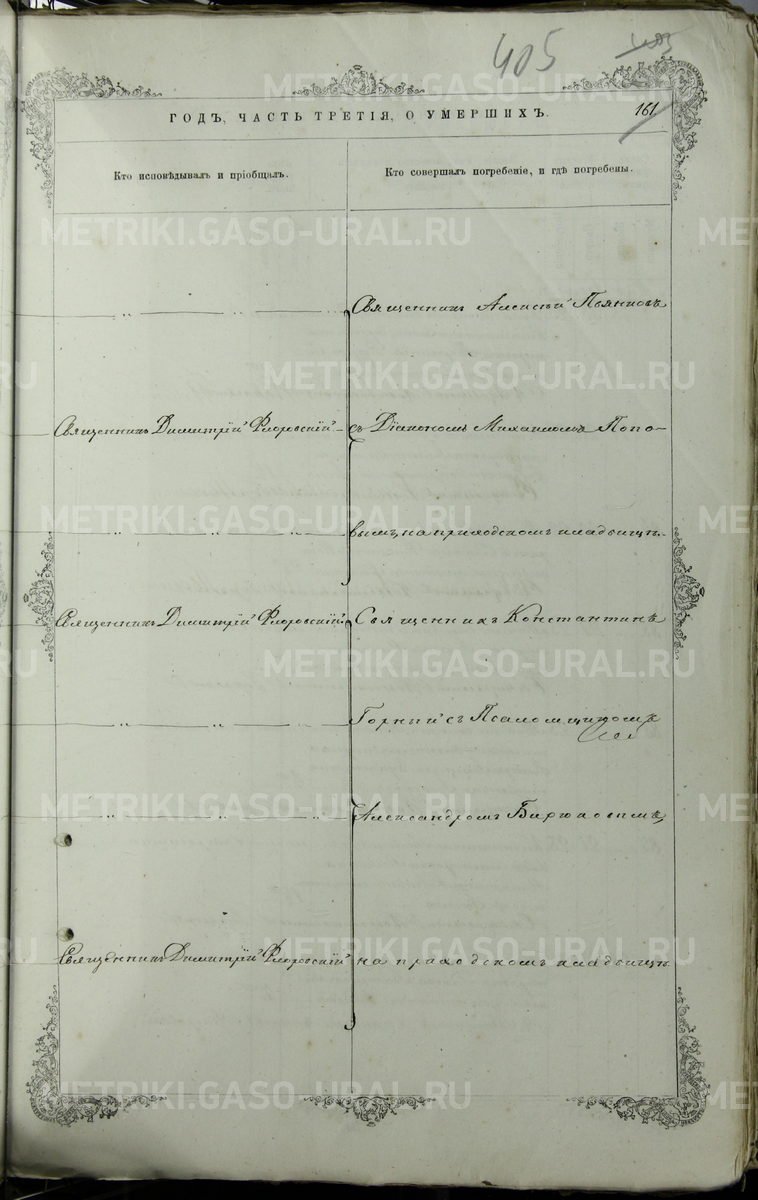 405
161
ГОДЪ, ЧАСТЬ ТРЕТІЯ, О УМЕРШИХЪ.
Кто исповѣдывалъ и пріобщалъ.
Кто совершалъ погребеніе, и гдѣ погребены.
Священникъ Алексѣй Пьянковъ
Священникъ Димитрій Флоровскій
съ Діакономъ Михаиломъ Попо-
вымъ, на приходскомъ кладбищѣ.
Священникъ Димитрій Флоровскій
Священникъ Константинъ
Горный съ Псаломщикомъ
Александромъ Бирюковымъ,
Священникъ Димитрій Флоровскій
на приходскомъ кладбищѣ
METRIKI.GASO-URAL.RU